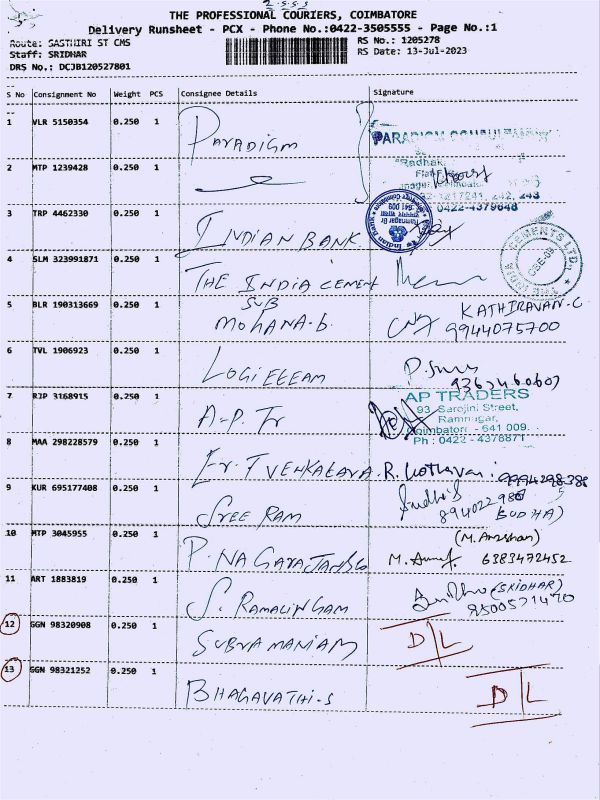 2-5-5-3
THE PROFESSIONAL COURIERS, COIMBATORE
Delivery Runsheet - PCX - Phone No.:0422-3505555 - Page No.:1
Route: SASTHIRI ST CMS
RS No.: 1205278
Staff: SRIDHAR
RS Date: 13-Jul-2023
DRS No.: DCJB120527801
S No Consignment No Weight PCS Consignee Details Signature
1 VLR 5150354 0.250 1 PARADIGM
PARADIGM CONSULTANCY
2 MTP 1239428 0.250 1
0422-4379648
3 TRP 4462330 0.250 1 INDIAN BANK
4 SLM 323991871 0.250 1 THE INDIA CEMENT
CEMENTS LTD.
5 BLR 190313669 0.250 1 SUB MOHANA-b. KATHIRAVAN-C
9944075700
6 TVL 1906923 0.250 1 LOGI
7 RJP 3168915 0.250 1 A-P. Tr
AP TRADERS
93 Sarojini Street,
Ramnagar,
Coimbatore - 641 009.
Ph : 0422 - 4376871
8 MAA 298228579 0.250 1 Er. T VENKATARA
9 KUR 695177408 0.250 1 SREE RAM
(SUDHA)
10 MTP 3045955 0.250 1 P. NAGARAJAN
6383472452
11 ART 1883819 0.250 1 S. RAMALINGAM (SRIDHAR)
12 GGN 98320908 0.250 1 SUBRAMANIAM D/L
13 GGN 98321252 0.250 1 BHAGAVATHI-S D/L